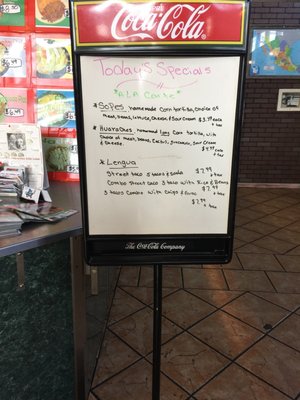 Coca-Cola
Today's Specials
*A LA Carte*
* Sopes, homemade Corn tortilla, choice of
meat, beans, lettuce, cheese, & Sour Cream $3.49 each
+ tax
* Huaraches homemade long Corn tortilla, with
choice of meat, beans,
& Cheese.
$4.99
+ tax
* Lengua
Street taco 3 tacos & soda $7.99
+ tax
Combo Street taco 3 taco with Rice & Beans
$7.99
+ tax
3 tacos Combo with Chips &
$7.99
+ tax
The Coca-Cola Company
$6.49